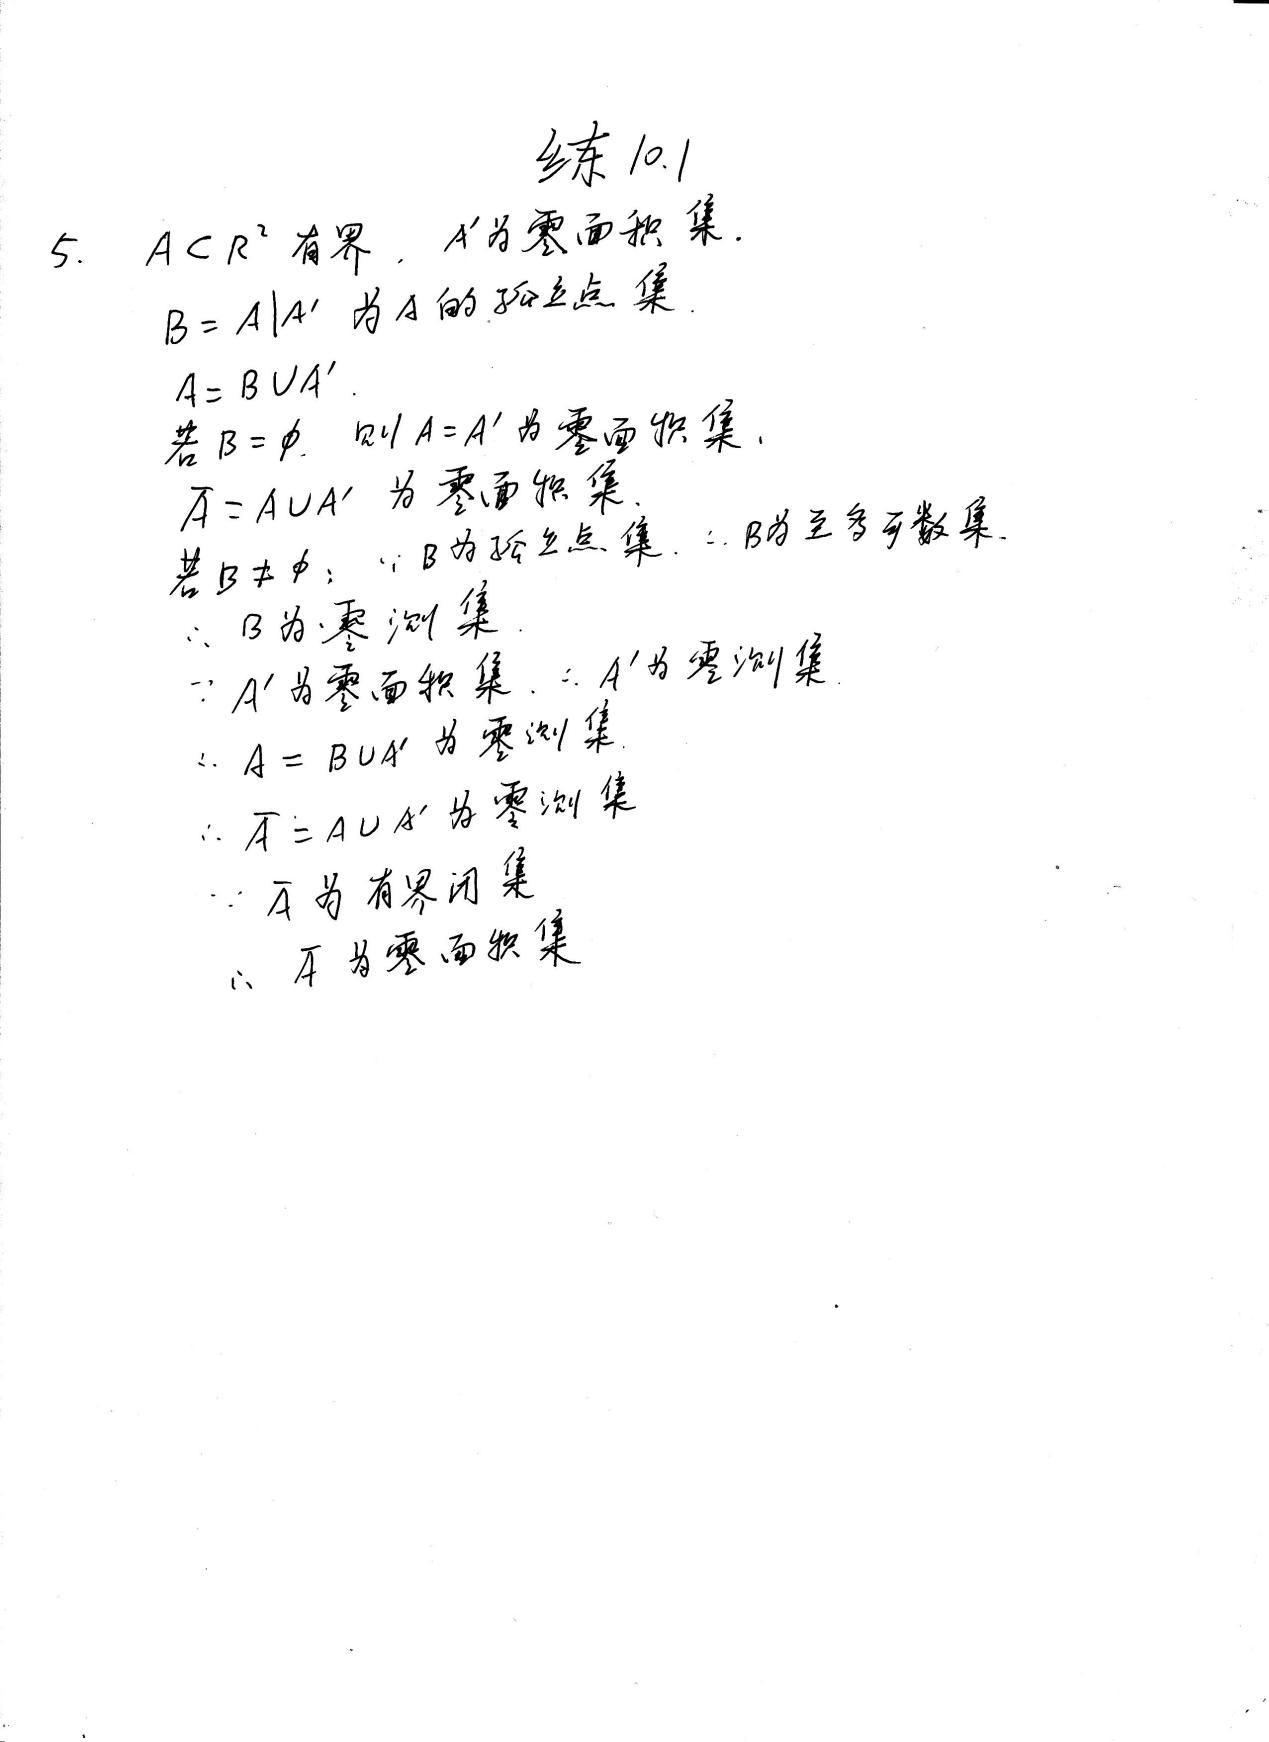 练 10.1
5. A⊂R² 有界, A'为零面积集.
B = A\A' 为A的孤立点集.
A = B∪A'.
若B=φ. 则A=A'为零面积集.
Ā=A∪A' 为零面积集.
若B≠φ; ∵B为孤立点集. ∴B为至多可数集.
∴ B为零测集.
∵ A'为零面积集. ∴A'为零测集.
∴ A = B∪A' 为零测集.
∴ Ā=A∪A'为零测集
∵ Ā为有界闭集
∴ Ā为零面积集